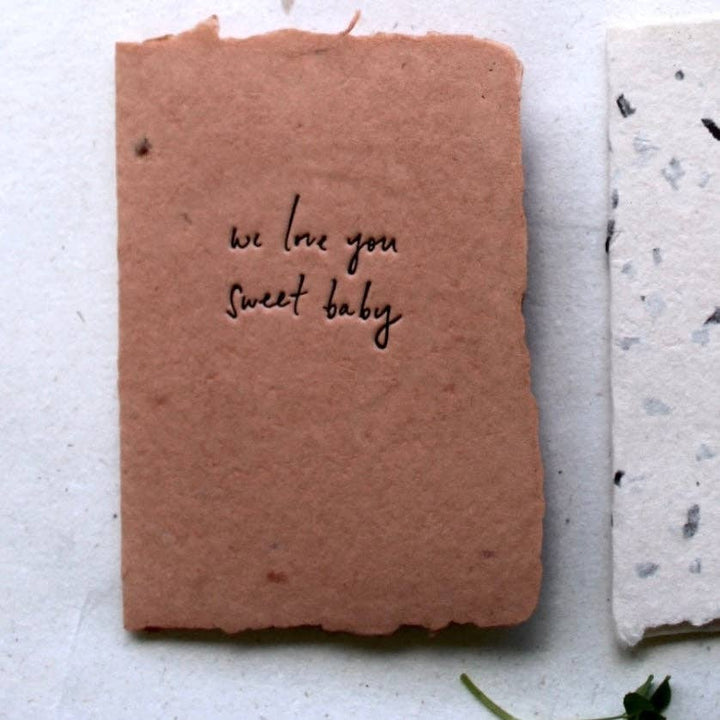 we love you
sweet baby